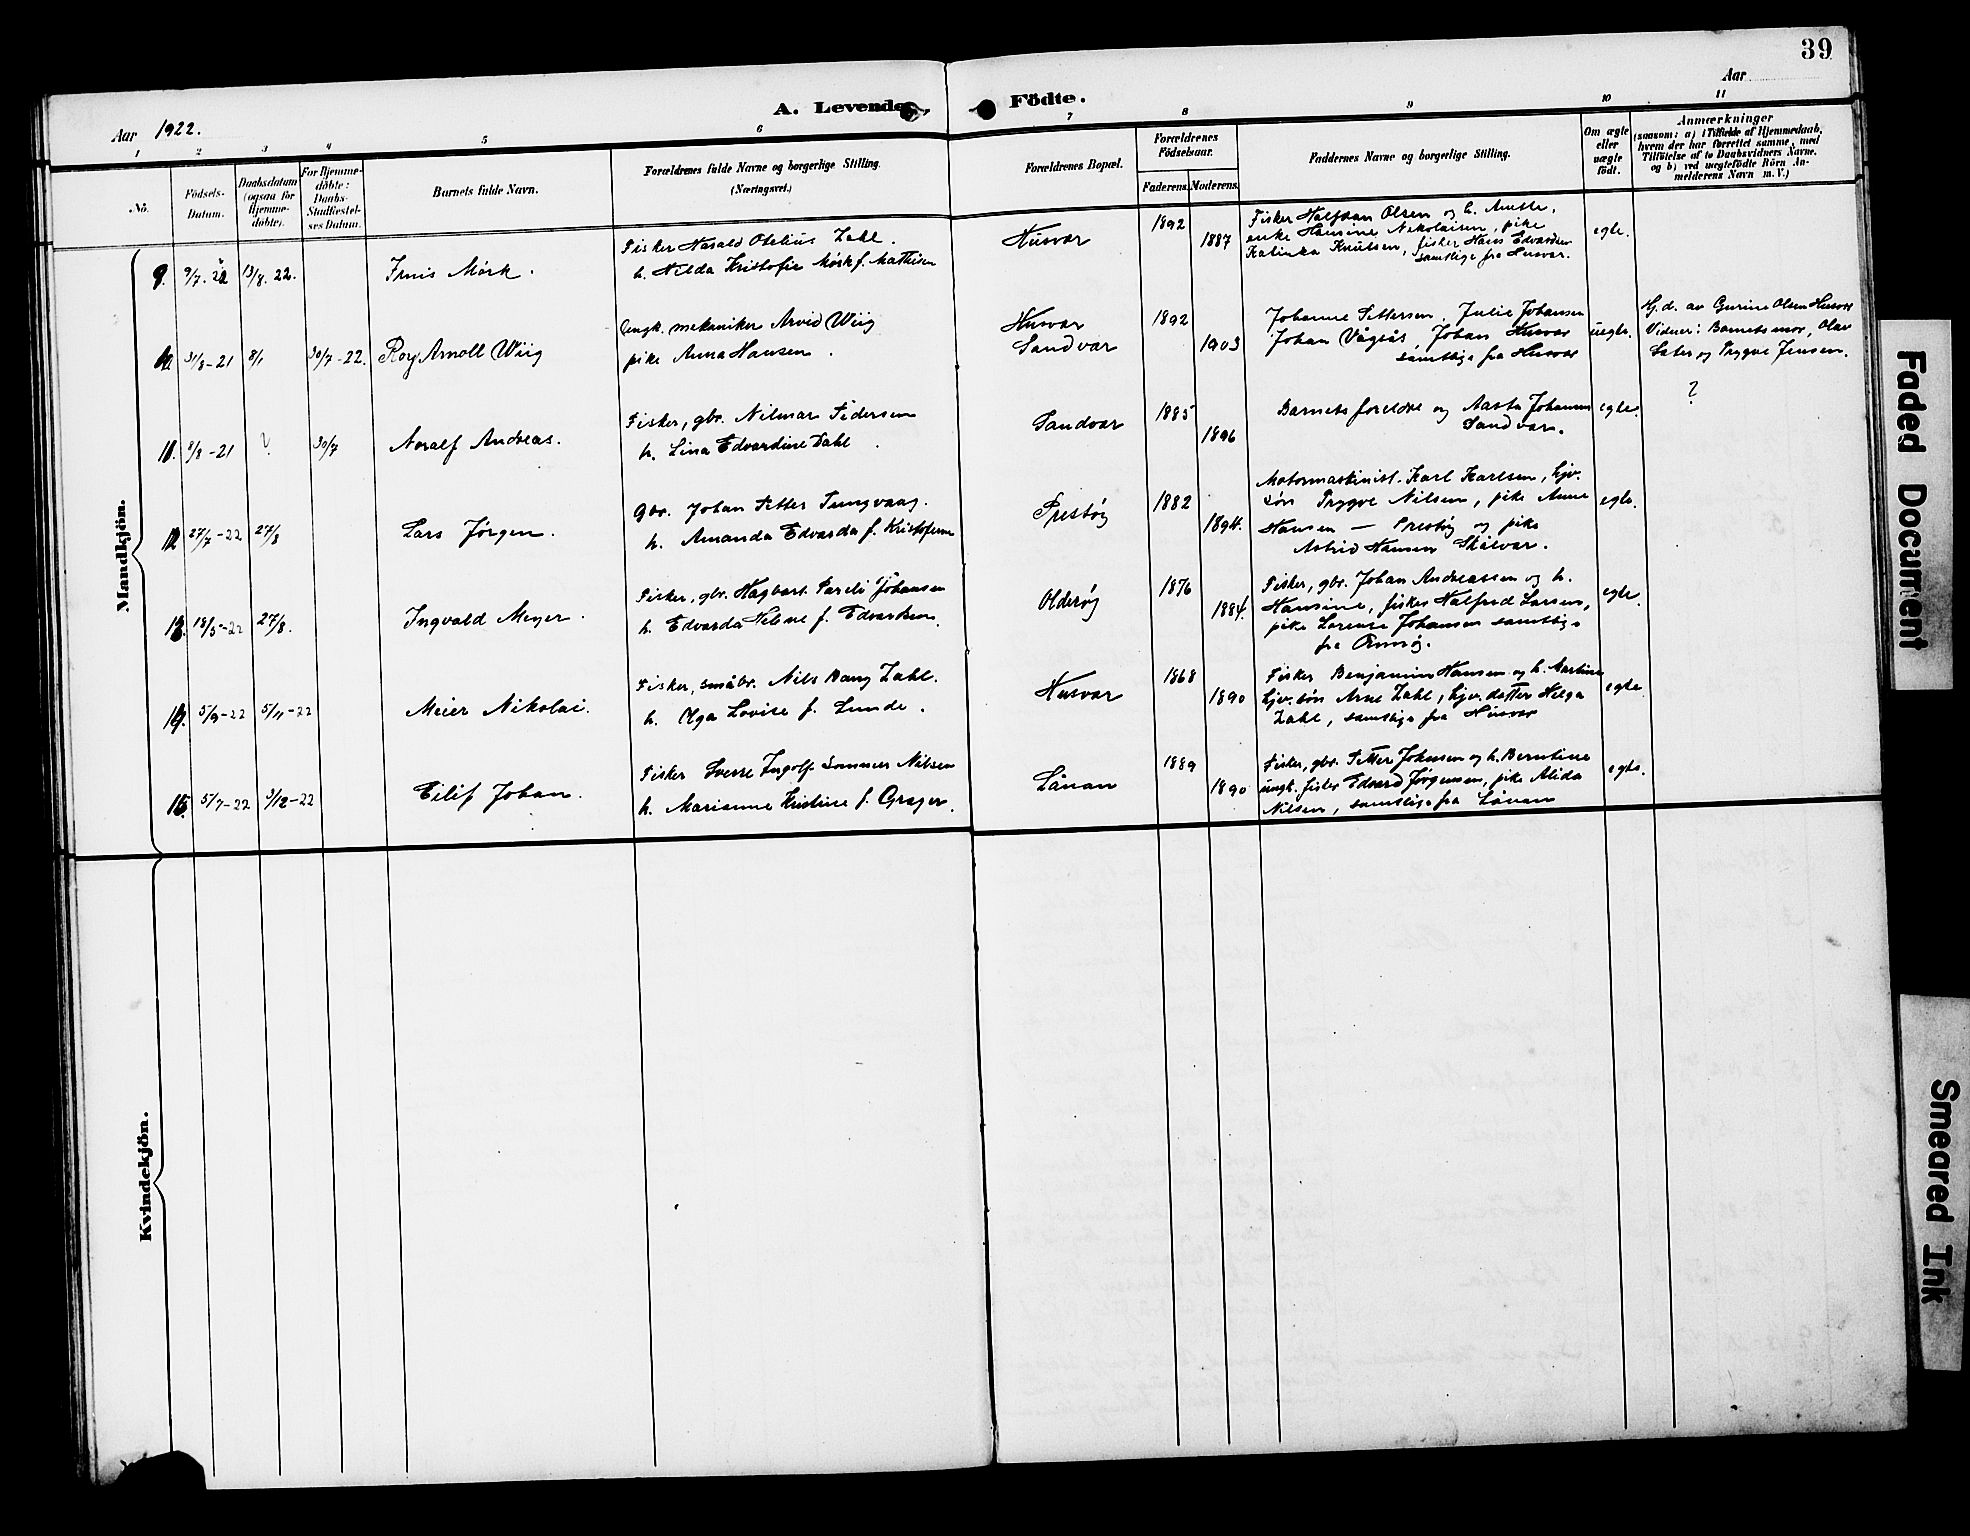 39
Aar
A. Levende Födte.
Aar 1922.
1 2 3 4 5 6 7 8 9 10 11
Nö.
Födsels-
Datum.
Daabsdatum
(ogsaa for
Hjemme-
døbte).
For Hjemme-
døbte:
Daabs-
Stadfæstel-
ses Datum.
Barnets fulde Navn.
Forældrenes fulde Navne og borgerlige Stilling.
(Næringsveb.)
Forældrenes Bopæl.
Forældrenes
Födselsaar.
Faderens. Moderens.
Faddernes Navne og borgerlige Stilling.
Om ægte
eller
uægte
födt.
Anmærkninger
(saasom: a) i Tilfælde af Hjemmedaab,
hvem der har forrettet samme, med
Tilföielse af to Daabsvidners Navne.
og b) ved uægtefödte Börn An-
melderens Navn m. V.)
Mandkjön.
9. 9/7. 22 13/8. 22. Mørk.
Fisker Harald Otelius Zahl.
h. Hilda Kristofie Mørk f. Mathisen
Husvær
1892
1887
Fisker Halfdan Olsen og h. Anette,
enke Hansine Nikolaisen, pike
Katinka Knutsen, fisker Hans Edvardsen
samtlige fra Husvær.
egte.
10. 31/8-21 8/1 30/7-22. Roy Arnoll Wiig
Ungk. mekaniker Arvid Wiig
pike Anna Hansen.
Husvær
Sandvær
1892
1903
Johanne Pettersen, Julie Johansen
Johan Vågsås, Johan Husvær
samtlige fra Husvær
uegte.
Hj.d. av Gurine Olsen Husvær
Vidner: Barnets mor, Olav
Sæter og Trygve Jensen.
11. 8/8-21 ? 30/7 Noralf Andreas.
Fisker, gbr. Hilmar Pedersen
h. Lina Edvardine Dahl.
Sandvær
1885
1896
Barnets foreldre og Aasta Johansen
Sandvær.
egte.
?
12. 27/7-22 27/8 Lars Jørgen.
Gbr. Johan Petter Tungvaag.
h. Amanda Edvarda f. Kristofersen
Prestøy
1882
1894.
Motormaskinist. Karl Karlsen, hjv.
søn Trygve Nilsen, pike Anne
Hansen — Prestøy og pike
Astrid Hansen Skålvær.
egte.
13. 18/5-22 27/8. Ingvald Meyer.
Fisker, gbr. Hagbart Pareli Johansen
h. Edvarda Helene f. Edvardsen.
Olderøy
1876
1884.
Fisker, gbr. Johan Andreassen og h.
Hansine, fisker Halfred Larsen,
pike Lorense Johansen samtlige
fra
egte.
14. 5/9-22 5/11-22 Meier Nikolai.
Fisker, småbr. Nils Bang Zahl.
h. Olga Lovise f. Lunde.
Husvær
1868
1890
Fisker Benjamin Hansen og h. Martine
hjv. søn Arne Zahl, hjv. datter Helga
Zahl, samtlige fra Husvær
egte
15. 5/7-22 3/12-22 Eilif Johan.
Fisker Sverre Ingolf Sommer Nilsen
h. Marianne Kristine f. Grøger.
Lånan
1889
1890
Fisker, gbr. Petter Johnsen og h. Berntine
ungk. fisker Edvard Jørgensen, pike Alida
Nilsen, samtlige fra Lånan
egte.
Kvindekjön.
Faded Document
Smeared Ink